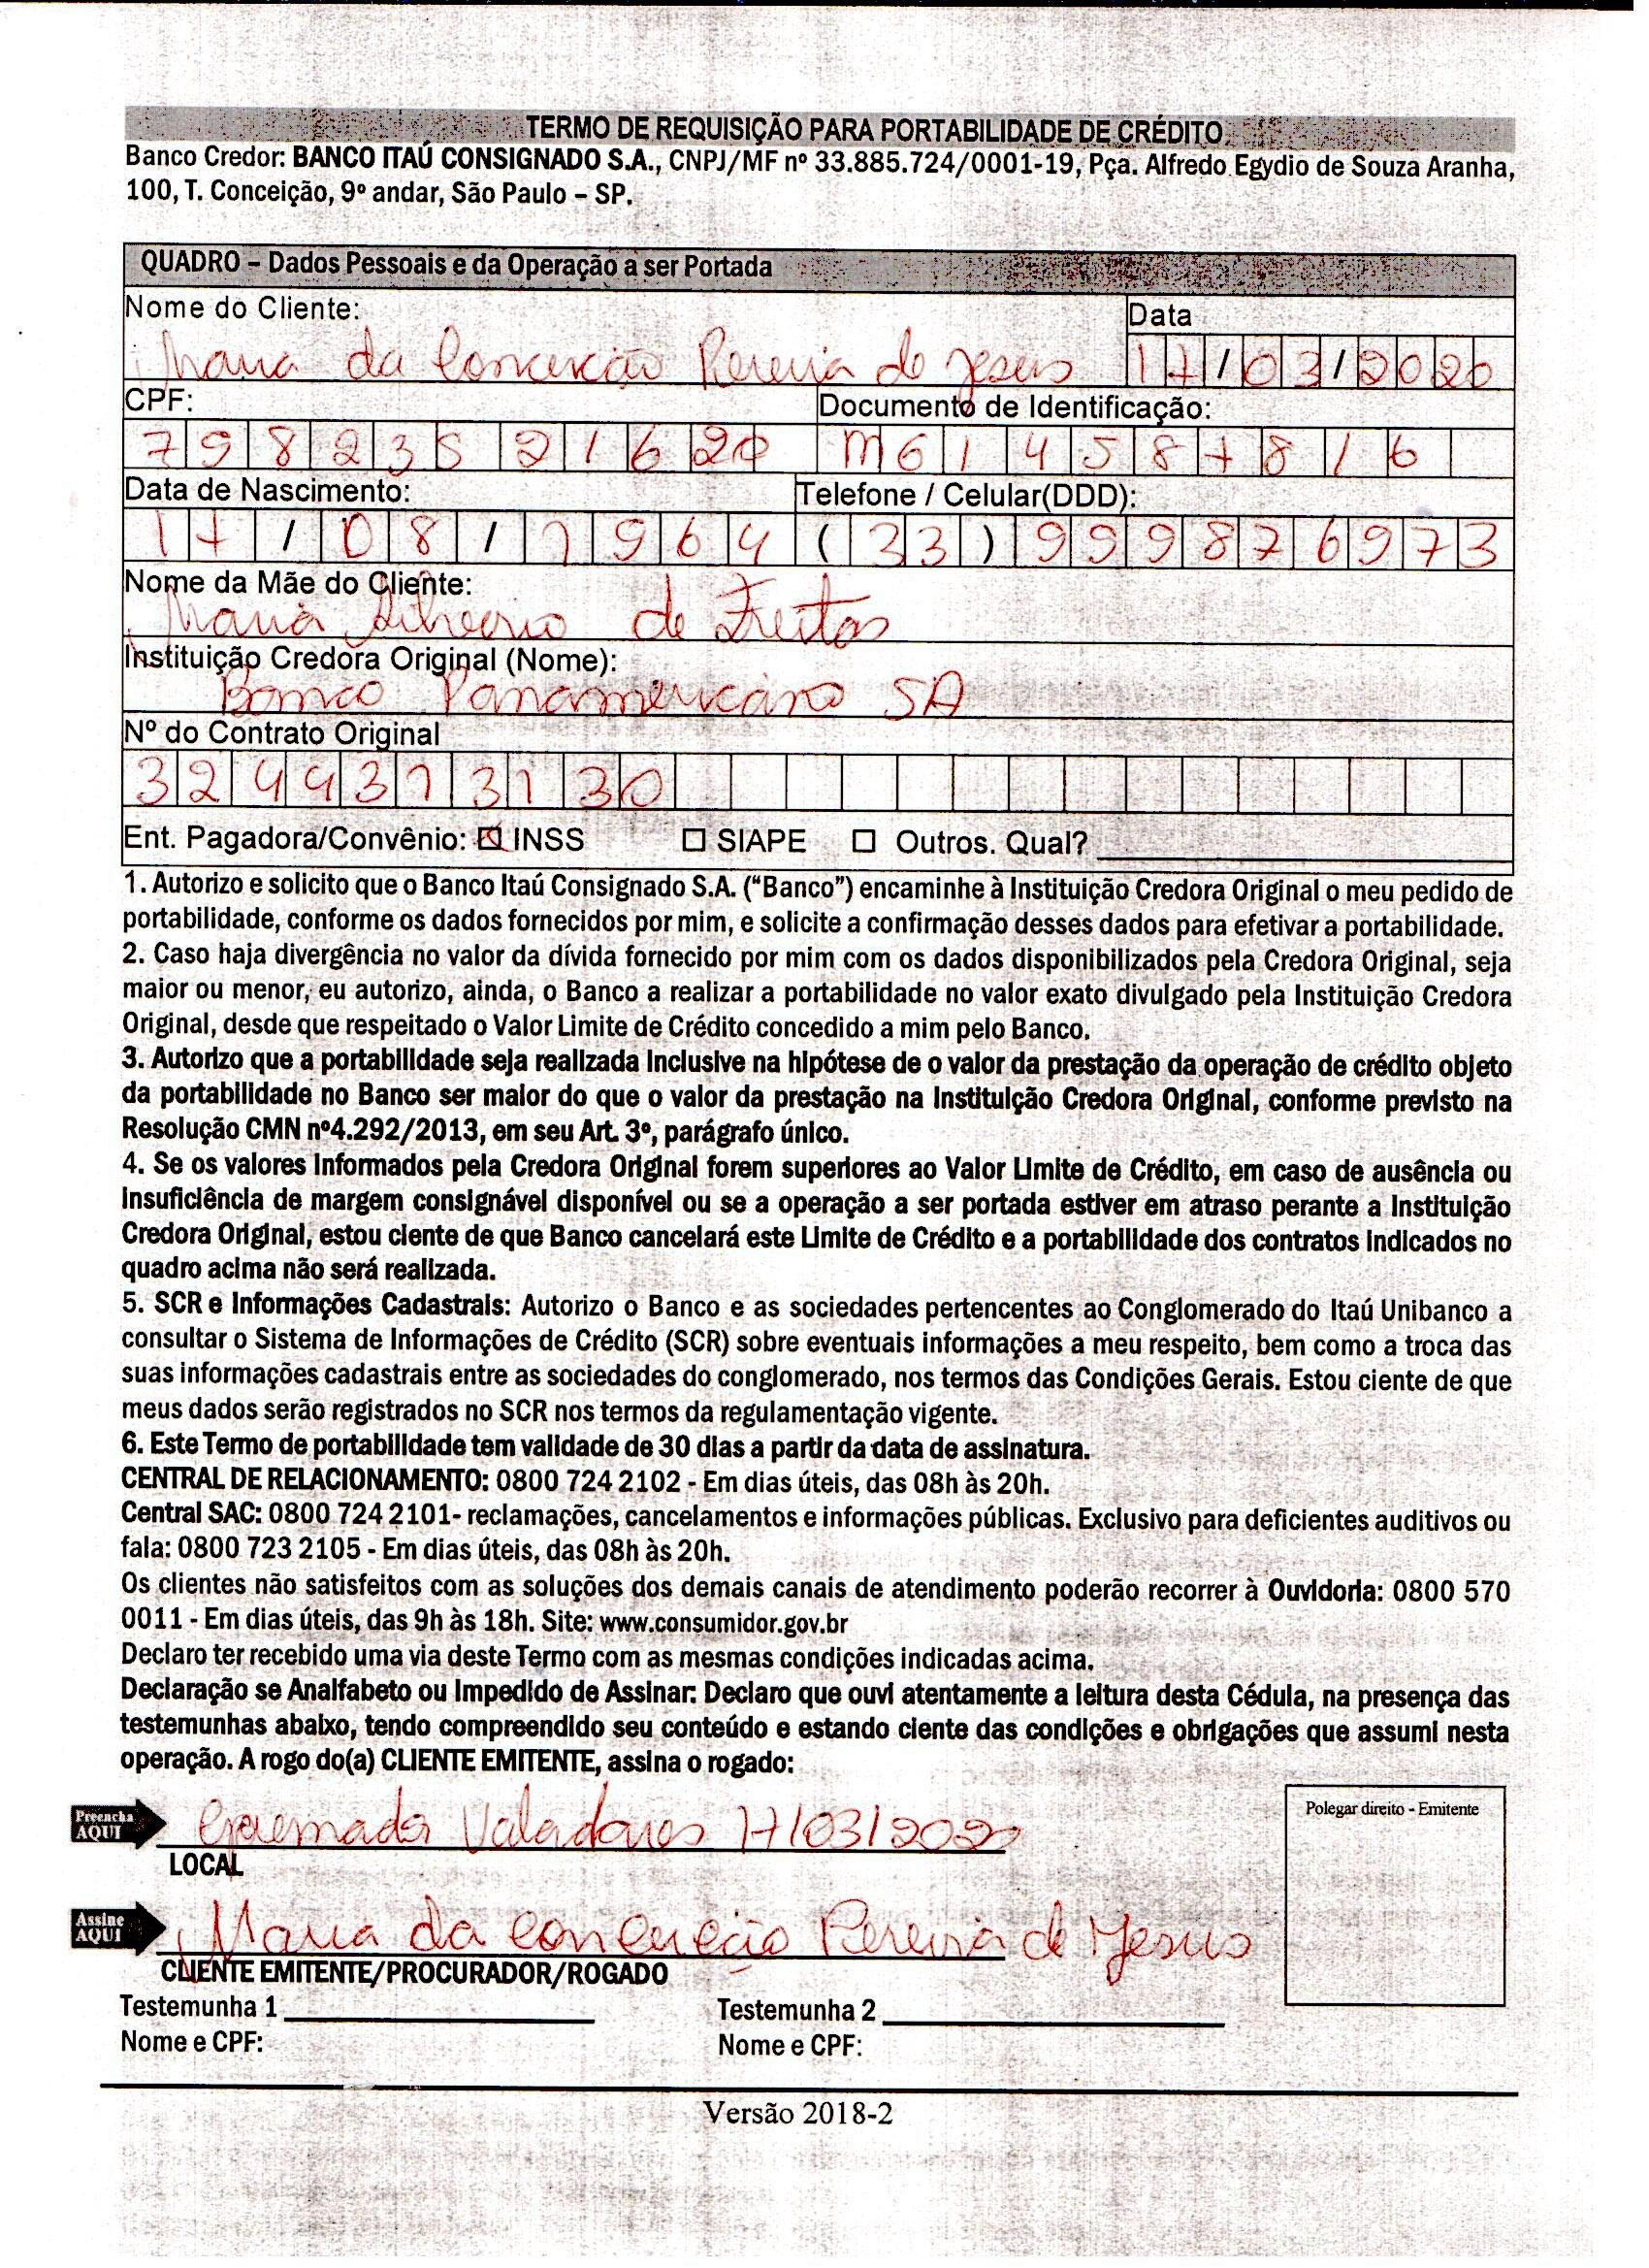 TERMO DE REQUISIÇÃO PARA PORTABILIDADE DE CRÉDITO
Banco Credor: BANCO ITAÚ CONSIGNADO S.A., CNPJ/MF nº 33.885.724/0001-19, Pça. Alfredo Egydio de Souza Aranha,
100, T. Conceição, 9º andar, São Paulo – SP.
QUADRO – Dados Pessoais e da Operação a ser Portada
Nome do Cliente: Data
Maria da Conceição Pereira de Jesus 17/03/2020
CPF: Documento de Identificação:
7 9 8 2 3 5 2 1 6 20 M G 1 4 5 8 7 8 1 6
Data de Nascimento: Telefone / Celular(DDD):
17/08/1964 (33) 999876973
Nome da Mãe do Cliente:
Maria de Freitas
Instituição Credora Original (Nome):
Banco Panamericano SA
Nº do Contrato Original
3244373130
Ent. Pagadora/Convênio: ☒ INSS ☐ SIAPE ☐ Outros. Qual?
1. Autorizo e solicito que o Banco Itaú Consignado S.A. (“Banco”) encaminhe à Instituição Credora Original o meu pedido de
portabilidade, conforme os dados fornecidos por mim, e solicite a confirmação desses dados para efetivar a portabilidade.
2. Caso haja divergência no valor da dívida fornecido por mim com os dados disponibilizados pela Credora Original, seja
maior ou menor, eu autorizo, ainda, o Banco a realizar a portabilidade no valor exato divulgado pela Instituição Credora
Original, desde que respeitado o Valor Limite de Crédito concedido a mim pelo Banco.
3. Autorizo que a portabilidade seja realizada inclusive na hipótese de o valor da prestação da operação de crédito objeto
da portabilidade no Banco ser maior do que o valor da prestação na Instituição Credora Original, conforme previsto na
Resolução CMN nº4.292/2013, em seu Art. 3º, parágrafo único.
4. Se os valores informados pela Credora Original forem superiores ao Valor Limite de Crédito, em caso de ausência ou
insuficiência de margem consignável disponível ou se a operação a ser portada estiver em atraso perante a Instituição
Credora Original, estou ciente de que Banco cancelará este Limite de Crédito e a portabilidade dos contratos indicados no
quadro acima não será realizada.
5. SCR e Informações Cadastrais: Autorizo o Banco e as sociedades pertencentes ao Conglomerado do Itaú Unibanco a
consultar o Sistema de Informações de Crédito (SCR) sobre eventuais informações a meu respeito, bem como a troca das
suas informações cadastrais entre as sociedades do conglomerado, nos termos das Condições Gerais. Estou ciente de que
meus dados serão registrados no SCR nos termos da regulamentação vigente.
6. Este Termo de portabilidade tem validade de 30 dias a partir da data de assinatura.
CENTRAL DE RELACIONAMENTO: 0800 724 2102 - Em dias úteis, das 08h às 20h.
Central SAC: 0800 724 2101- reclamações, cancelamentos e informações públicas. Exclusivo para deficientes auditivos ou
fala: 0800 723 2105 - Em dias úteis, das 08h às 20h.
Os clientes não satisfeitos com as soluções dos demais canais de atendimento poderão recorrer à Ouvidoria: 0800 570
0011 - Em dias úteis, das 9h às 18h. Site: www.consumidor.gov.br
Declaro ter recebido uma via deste Termo com as mesmas condições indicadas acima.
Declaração se Analfabeto ou Impedido de Assinar: Declaro que ouvi atentamente a leitura desta Cédula, na presença das
testemunhas abaixo, tendo compreendido seu conteúdo e estando ciente das condições e obrigações que assumi nesta
operação. A rogo do(a) CLIENTE EMITENTE, assina o rogado:
Polegar direito - Emitente
Preencha
AQUI
Governador Valadares 17/03/2020
LOCAL
Assine
AQUI
Maria da Conceição Pereira de Jesus
CLIENTE EMITENTE/PROCURADOR/ROGADO
Testemunha 1 Testemunha 2
Nome e CPF: Nome e CPF:
Versão 2018-2